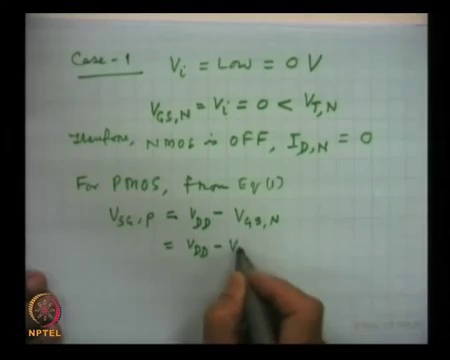 Case-1 Vi = Low = 0 V
VGS,N = Vi = 0 < VT,N
Therefore, NMOS is OFF, ID,N = 0
For PMOS, from Eq(1)
VSG,P = VDD - VGS,N
= VDD - V
NPTEL